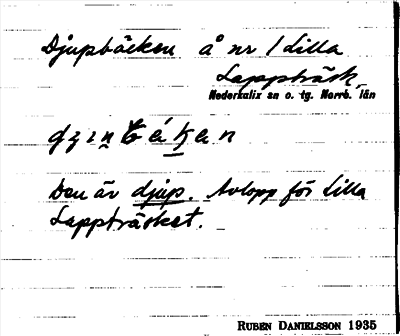 Djupbäcken å nr 1 Lilla
Lappträsk,
Nederkalix sn o. tg. Norrb. län
Den är djup. Avlopp för Lilla
Lappträsket.
RUBEN DANIELSSON 1935